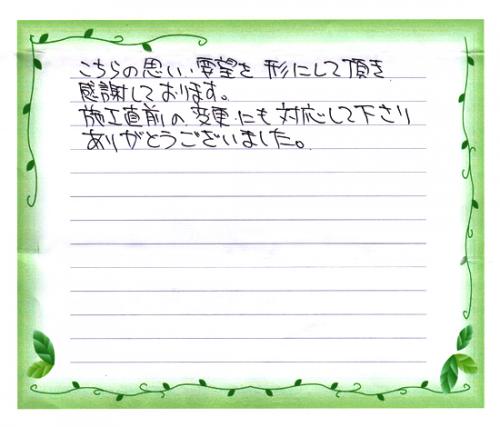 こちらの思い、要望を形にして頂き
感謝しております。
施工直前の変更にも対応して下さり
ありがとうございました。